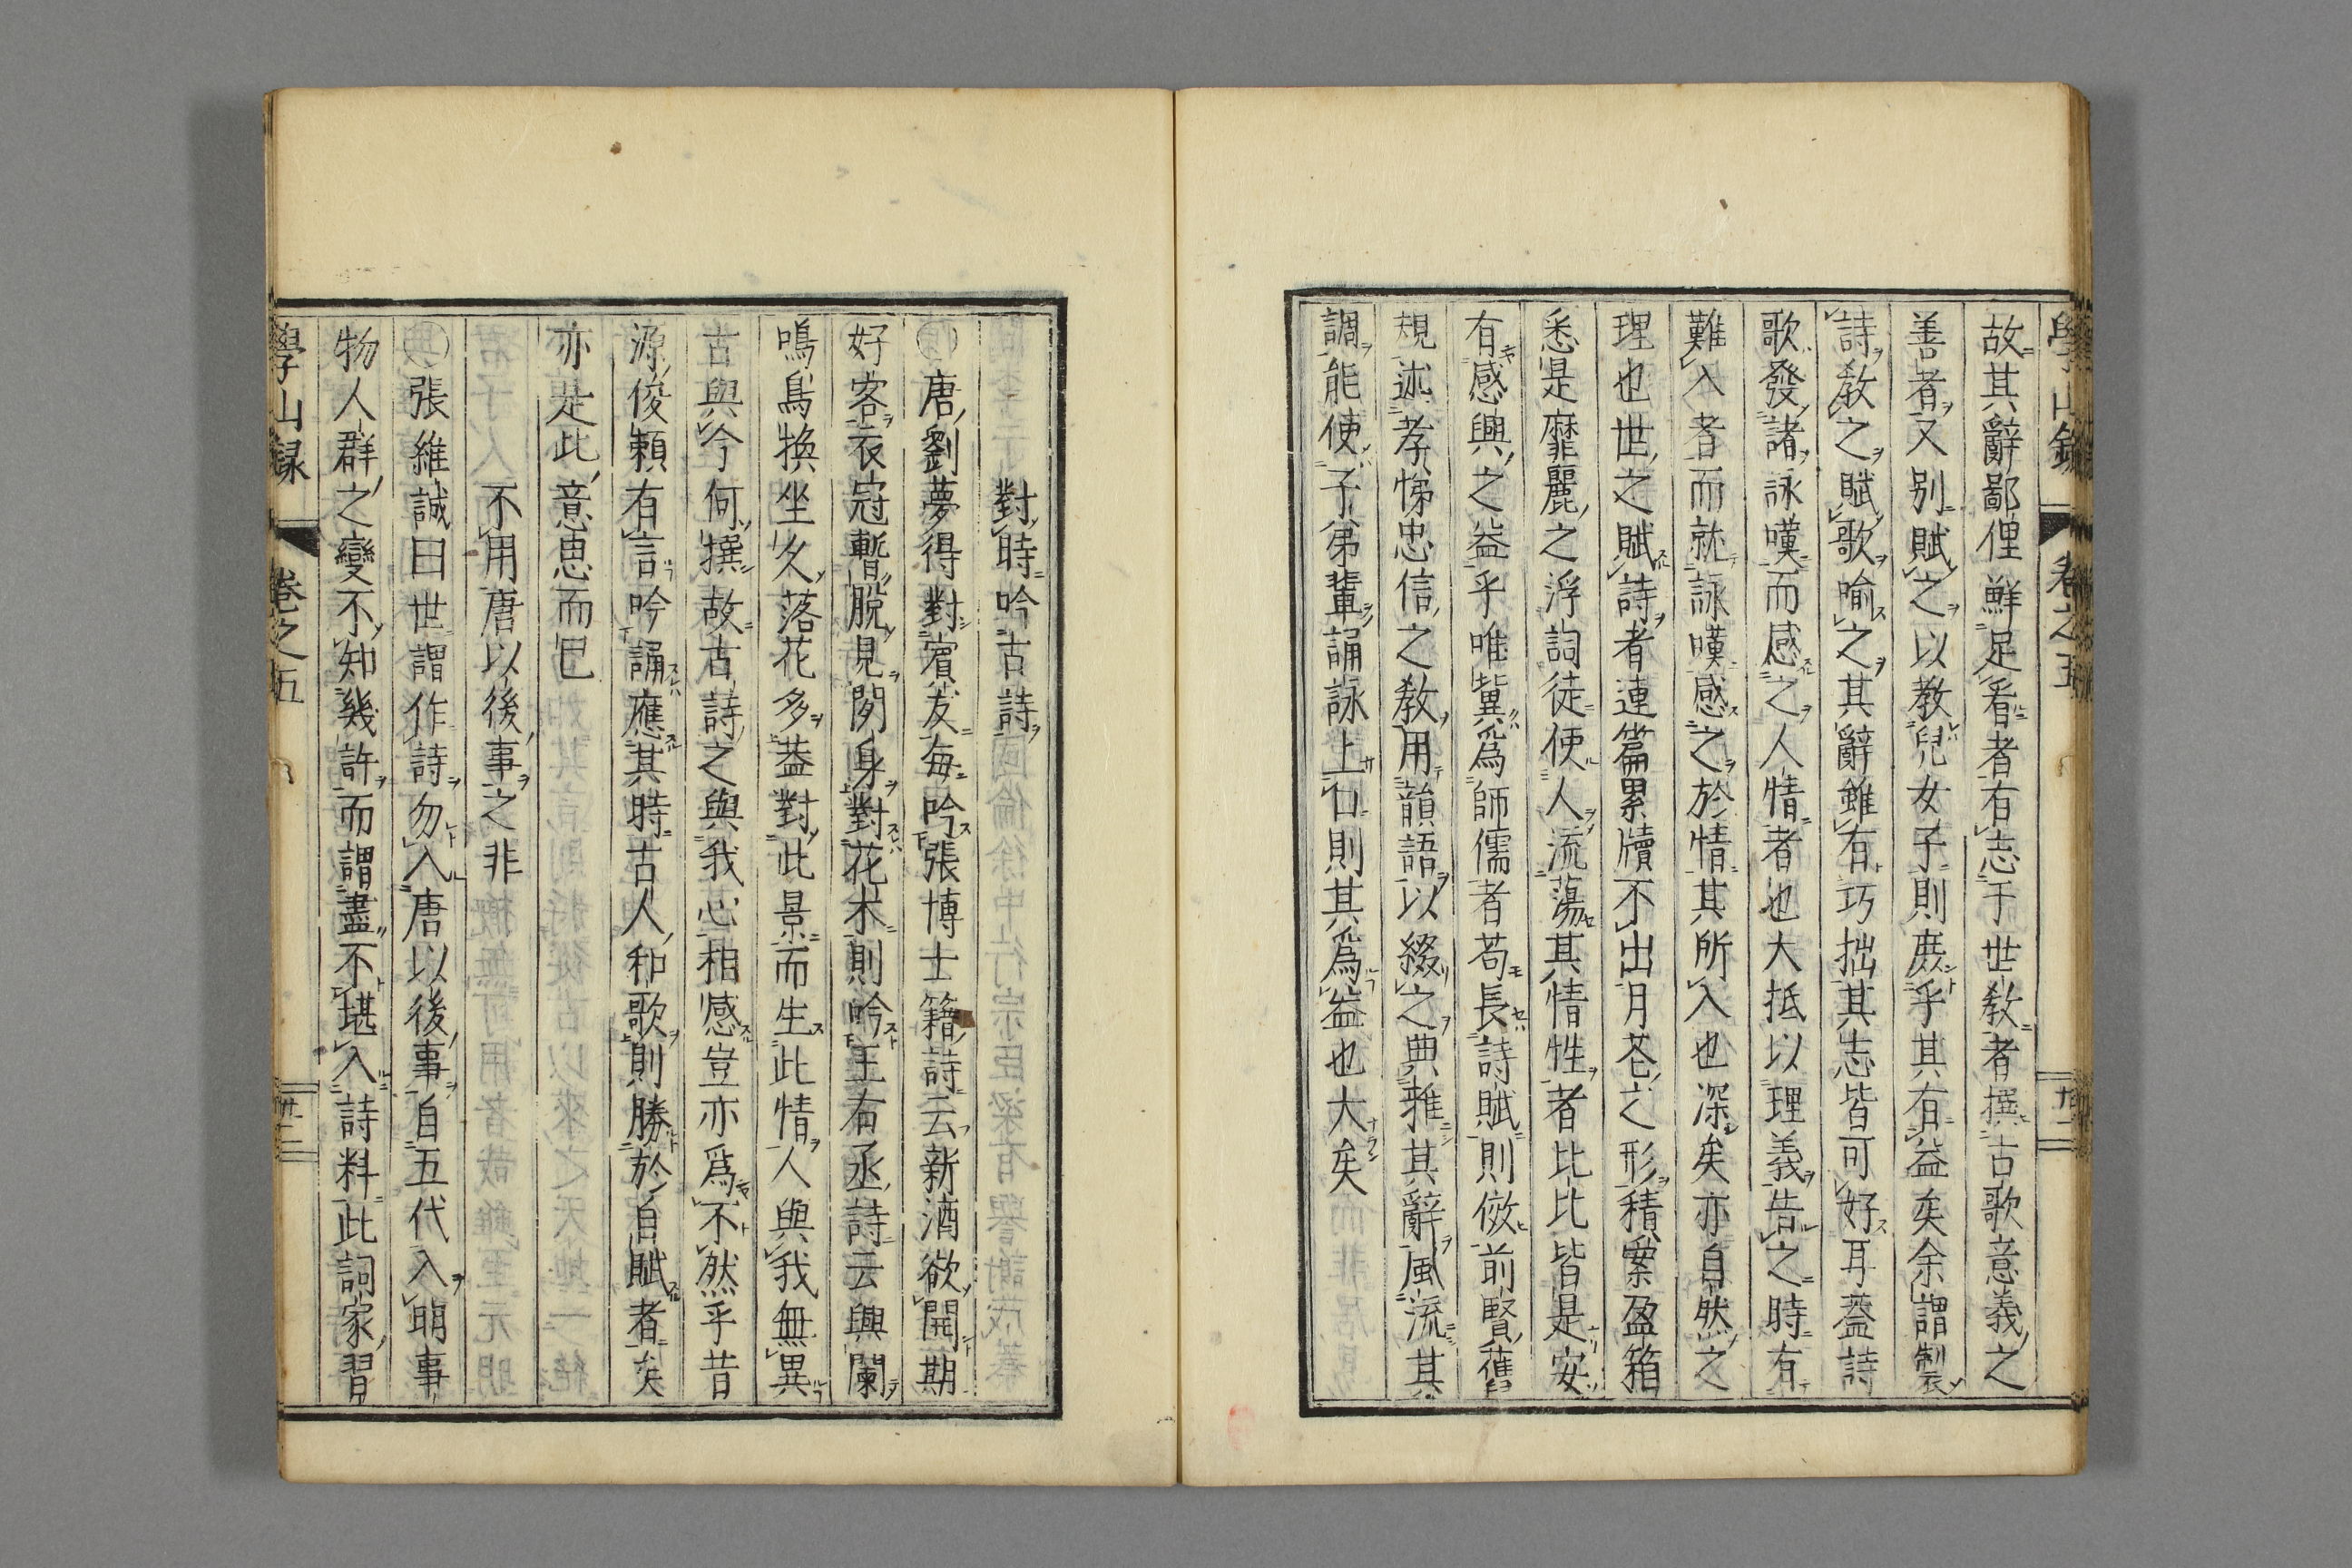 學山錄 卷之五
故其辭鄙俚鮮足看者有志于世教者撰古歌意義之
善者又別賦之以教兒女子則庶乎其有益矣余謂製
詩教之賦歌喻之其辭雖有巧拙其志皆可好耳蓋詩
歌發諸詠嘆而感之人情者也大抵以理義告之時有
難入者而就詠嘆感之於情其所入也深矣亦自然之
理也世之賦詩者連篇累牘不出月苍之形積案盈箱
悉是靡麗之浮詞徒使人流蕩其情性者比比皆是安
有感興之益乎唯冀爲師儒者苟長詩賦則倣前賢舊
規述孝悌忠信之教用韻語以綴之典雅其辭風流其
調能使子弟輩誦詠上口則其爲益也大矣
對時吟古詩
唐劉夢得對賓友每吟張博士籍詩云新酒欲開期
好客衣冠暫脫見閑身對花木則吟王右丞詩云興闌
鳴鳥換坐久落花多蓋對此景而生此情人與我無異
古與今何撰故古詩之與我志相感豈亦爲不然乎昔
源俊賴有言吟誦應其時古人和歌則勝於自賦者矣
亦是此意思而已
不用唐以後事之非
張維誠曰世謂作詩勿入唐以後事自五代入明事
物人群之變不知幾許而謂盡不堪入詩料此詞家習
學山録 卷之五 廿二